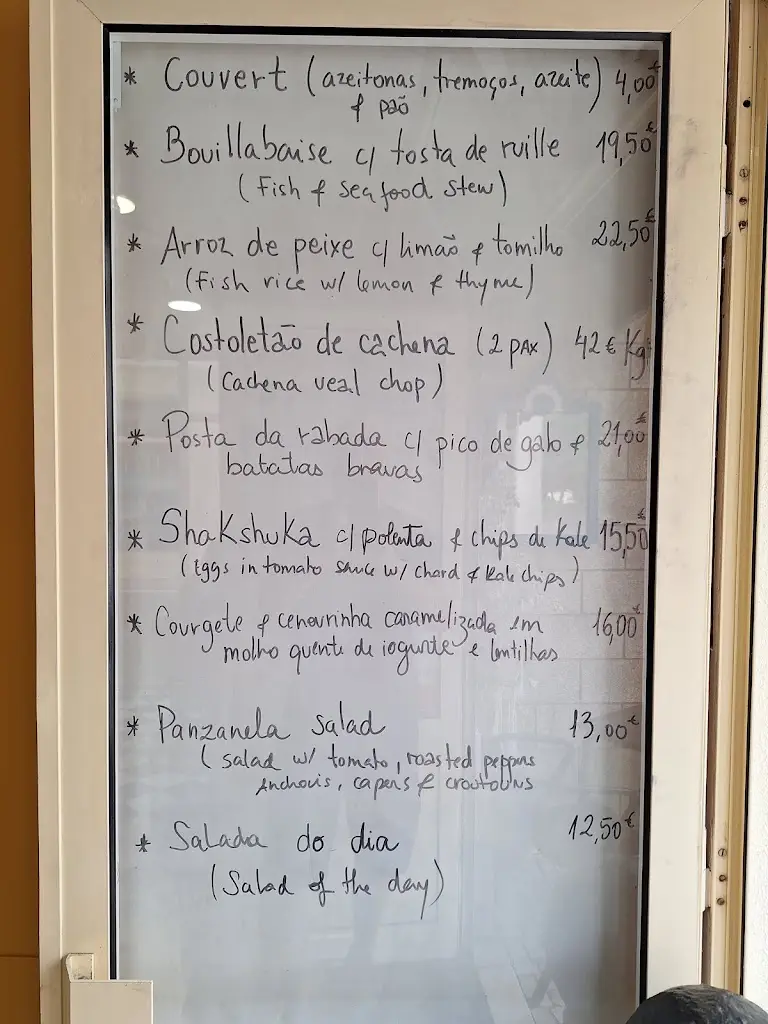 * Couvert (azeitonas, tremoços, azeite) 4,00€
& pão
* Bouillabaise c/ tosta de ruille 19,50€
(Fish & seafood stew)
* Arroz de peixe c/ limão & tomilho 22,50€
(Fish rice w/ lemon & thyme)
* Costoletão de cachena (2 PAX) 42€ Kg
(Cachena veal chop)
* Posta da rabada c/ pico de galo & 21,00€
batatas bravas
* Shakshuka c/ polenta & chips de Kale 15,50€
(Eggs in tomato sauce w/ chard & Kale chips)
* Courgete & cenourinha caramelizada em 16,00€
molho quente de iogurte e lentilhas
* Panzanela salad 13,00€
(salad w/ tomato, roasted peppers
anchovis, capers & croutouns
* Salada do dia 12,50€
(Salad of the day)